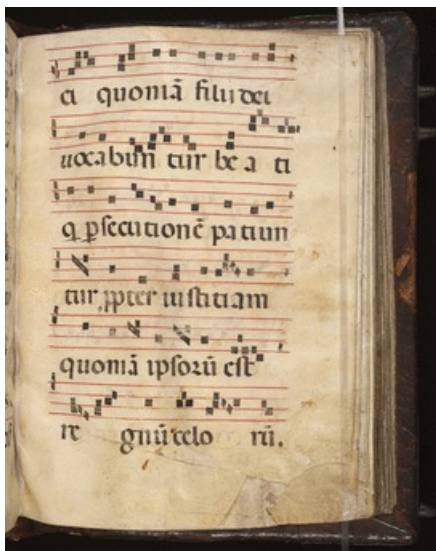 ci quoniā filii dei
uocabūn tur be a ti
q ꝑsecutionē patiun
tur ꝓpter iustitiam
quoniā ipsorū est
re gnū celo rū.